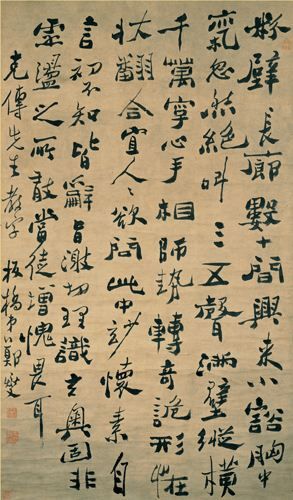 粉壁長廊數十間興來小豁胸中
氣忽然絕叫三五聲滿壁縱橫
千萬字心手相師勢轉奇詭形怪
狀翻合宜人人欲問此中妙懷素自
言初不知皆辭旨激切理識玄奧固非
虛盪之所敢當徒增愧畏耳
克傳先生教字 板橋弟鄭燮